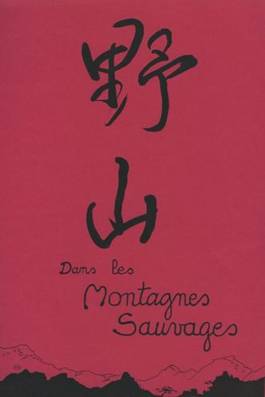 野
山
Dans les
Montagnes
Sauvages